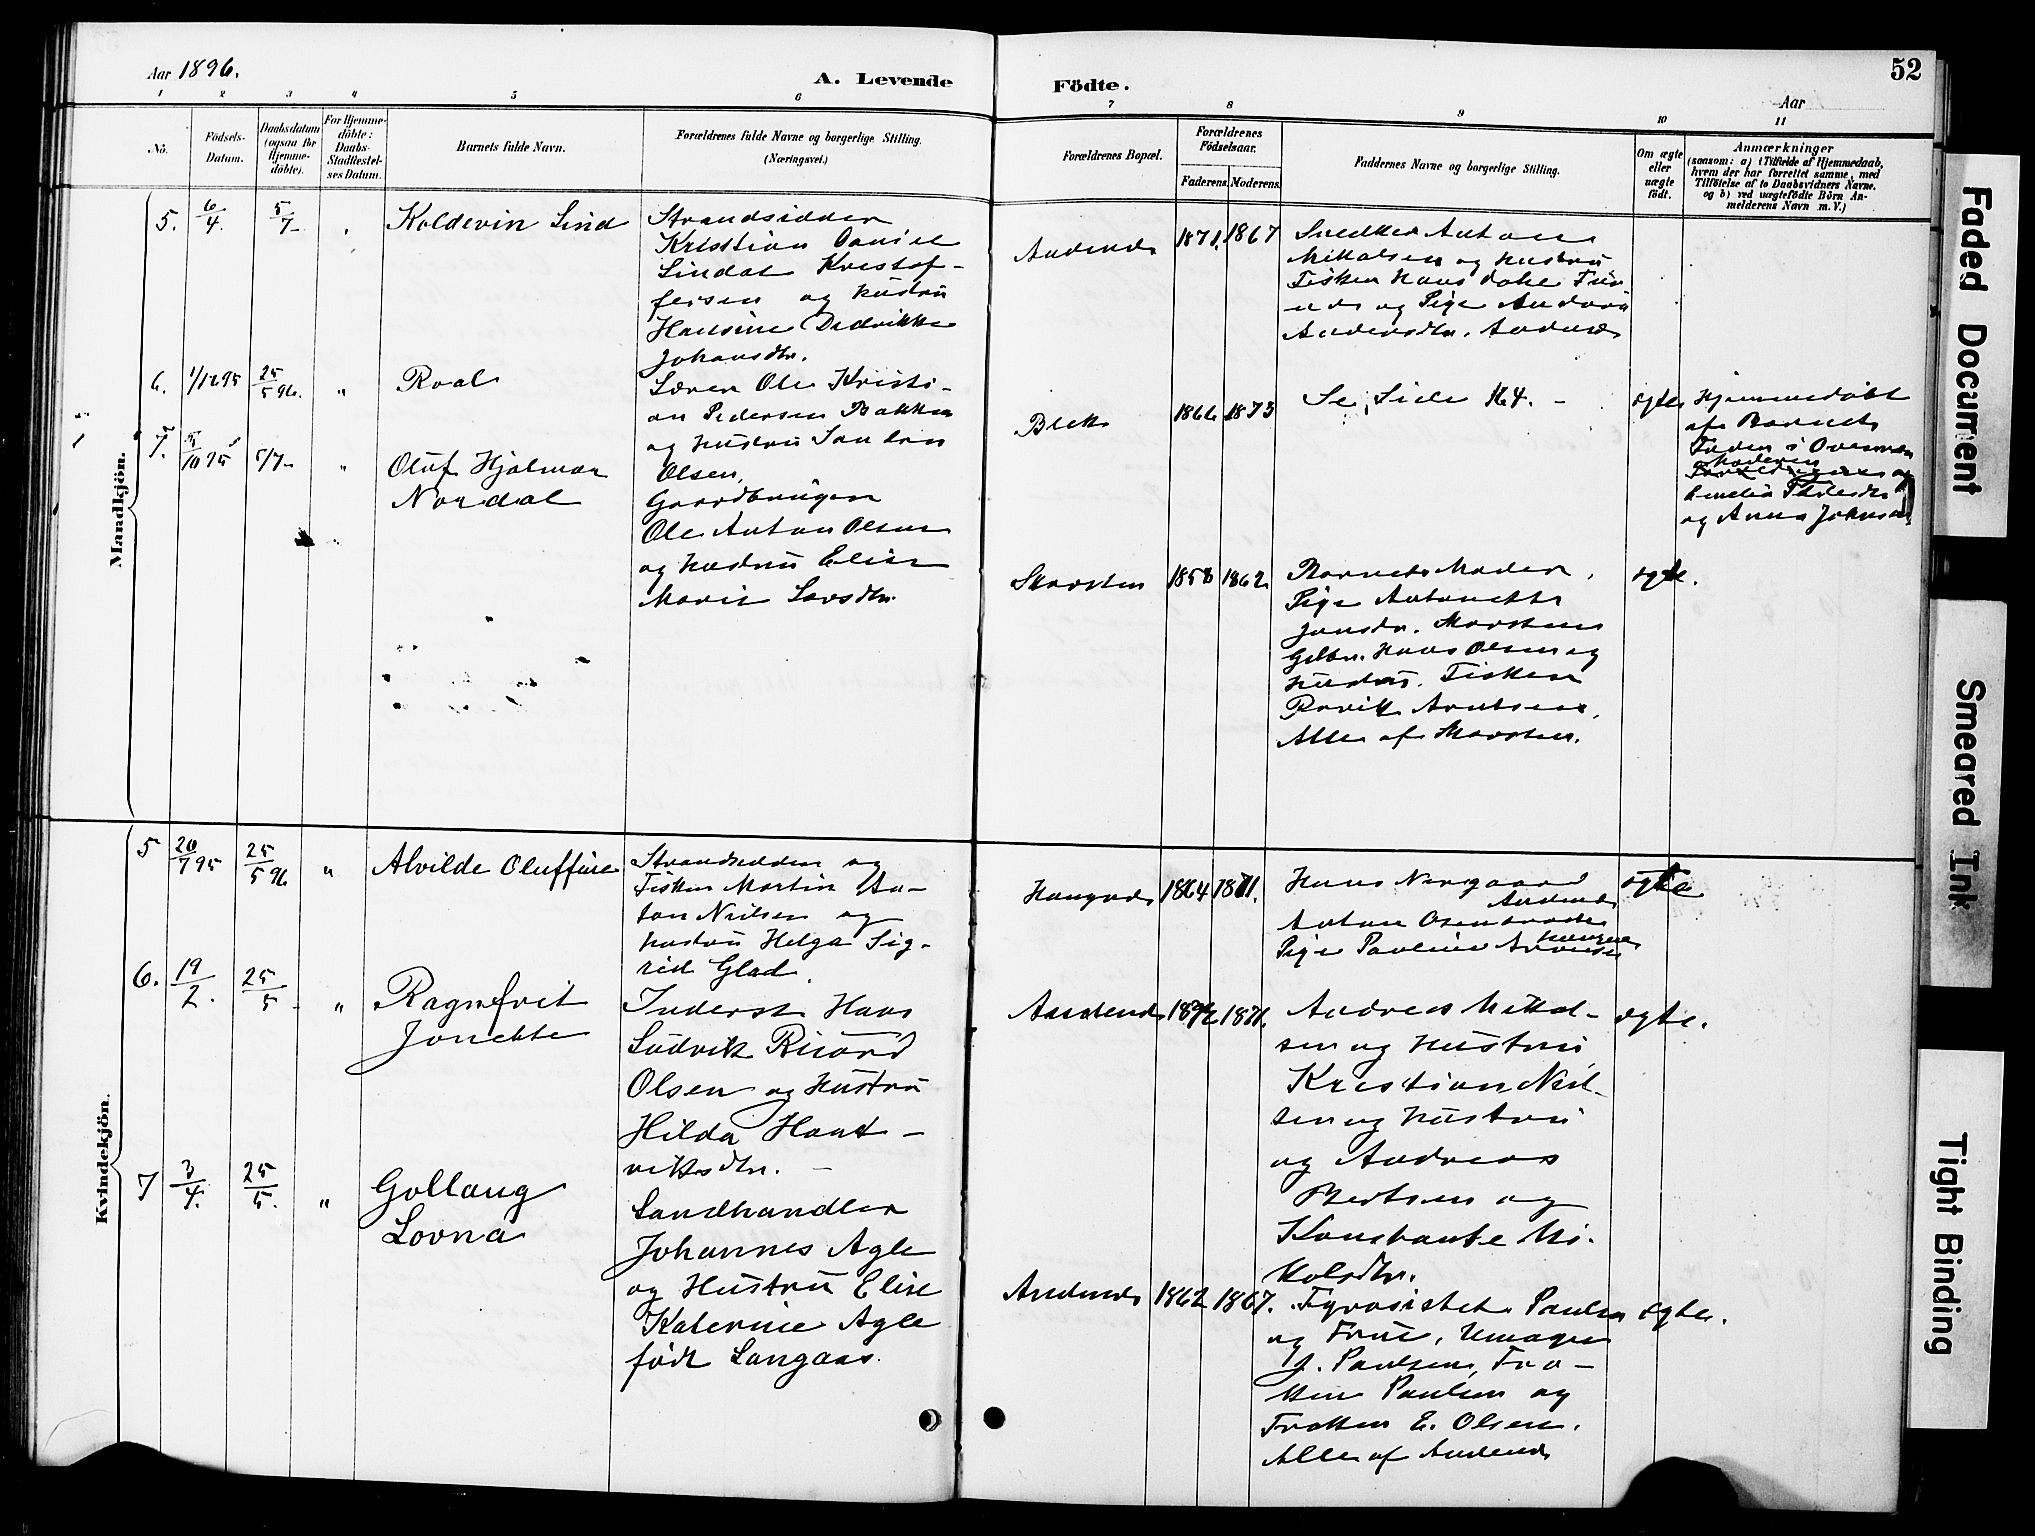 Aar 1896.
A. Levende Födte.
52
Aar
1 2 3 4 5 6 7 8 9 10 11
No.
Födsels-
Datum.
Daabsdatum
(ogsaa for
Hjemme-
döbte).
For Hjemme-
döbte:
Daabs-
Stadfæstel-
ses Datum.
Barnets fulde Navn.
Forældrenes fulde Navne og borgerlige Stilling.
(Næringsvei.)
Forældrenes Bopæl.
Forældrenes
Födselsaar.
Faderens. Moderens.
Faddernes Navne og borgerlige Stilling.
Om ægte
eller
uægte
født.
Anmærkninger
(saasom: a) i Tilfælde af Hjemmedaab,
hvem der har forrettet samme, med
Tilföielse af to Daabsvidners Navne,
og b) ved uægtefödte Börn An-
melderens Navn m. V.)
Mandkjön.
5. 6/4. 5/7 "
Koldevin Lind
Strandsidder
Kristian Daniel
Lindal Kristof-
fersen og Hustru
Hansine Dedrikke
Johansdtr.
Andenes
1871. 1867
Snedker Anton
Mikkalsen og Hustru
Fisker Hans
og Pige
Andersdtr. Andenes
6. 1/12 95 25/5 96. "
Roal
Lærer Ole Kristi-
an Pedersen Bakken
og Hustru
Olsen.
Bleik
1866 1873
Se Side 164. -
ægte
Hjemmedøbt
af Barnets
Fader i Overvær
Moderen
og
Amelia
og Anna Johnsen
7. 5/10 95 5/7 "
Oluf Hjalmar
Nordal
Gaardbruger
Ole Anton Olsen
og Hustru Elise
Marie Larsdtr.
Skarsten
1858 1862
Barnets Moder,
Pige Antonette
Jonsdtr. Skarsten
Gdbr. Hans Olsen og
Hustru. Fisker
Rorvik Arntsen,
Alle af Skarsten.
ægte.
Kvindekjön.
5 20/7 95 25/5 96 "
Alvilde Oluffine
Strandsidder og
Fisker Martin An-
ton Nielsen og
Hustru Helga Sig-
rid Glad.
Haugnes
1864 1871.
Hans Norgaard
Andenes
Anton
Pige Pauline
Haugnes
ægte
6. 19/2. 25/5 "
Ragnfrit
Jonette
Inderst Hans
Ludvik Ricard
Olsen og Hustru
Hilda Hant-
viksdtr. -
Andenes
1872 1871.
Andreas Mikkal-
sen og Hustru
Kristian Niel-
sen og Hustru
og Andreas
Bertsen og
Konstante Ni-
kolsdtr.
ægte.
7 3/4. 25/5. "
Gollaug
Lovna
Landhandler
Johannes Agle
og Hustru Elise
Katerine Agle
født Langaas.
Andenes
1862 1867.
Fyrassistet Paulsen
og Frue,
J. Paulsen, Frø-
ken Paulsen og
Frøken E. Olsen.
Alle af Andenes
ægte.
Faded Document
Smeared Ink
Tight Binding